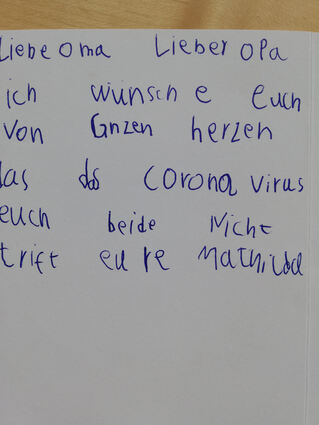 Liebe Oma Lieber Opa
ich wünsche Euch
von Gnzen herzen
das das Corona virus
euch beide Nicht
trift eure Mathilda